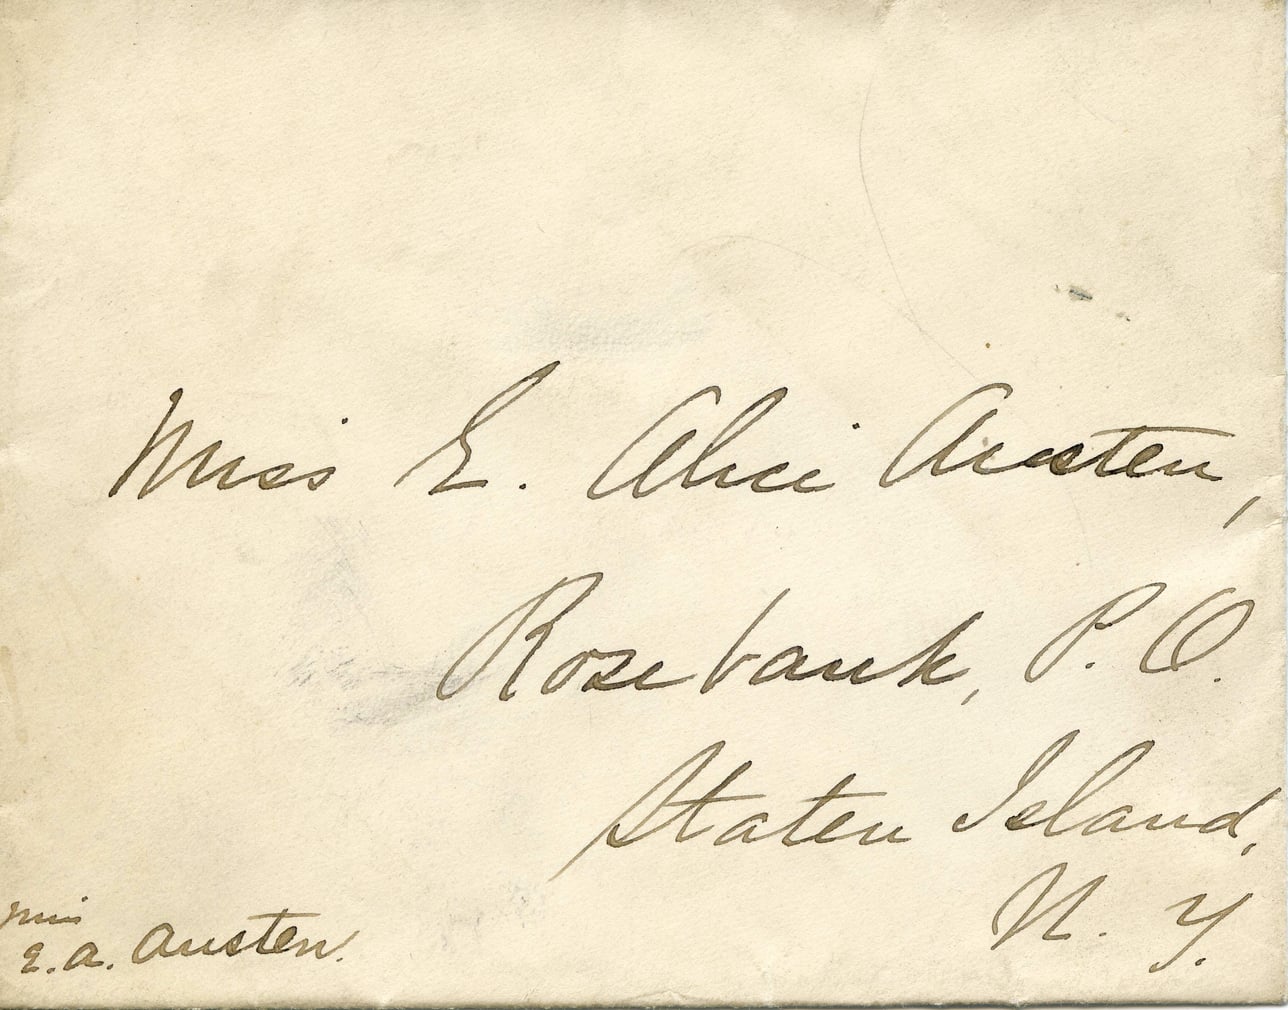 Miss E. Alice Austen,
Rosebank, P. O.
Staten Island,
N. Y.
Miss
E. A. Austen.